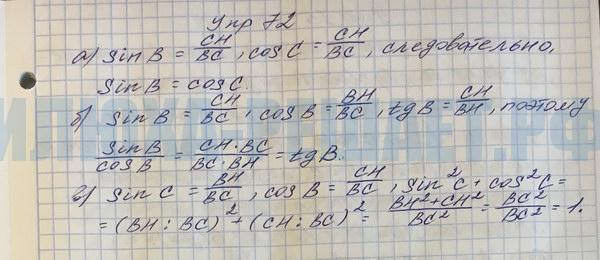 Упр 72
а) sin B = CH/BC, cos C = CH/BC, следовательно,
sin B = cos C.
б) sin B = CH/BC, cos B = BH/BC, tg B = CH/BH, поэтому
sin B/cos B = CH·BC/BC·BH = tg B.
в) sin C = BH/BC, cos B = CH/BC, sin²C + cos²C =
= (BH : BC)² + (CH : BC)² = BH²+CH²/BC² = BC²/BC² = 1.